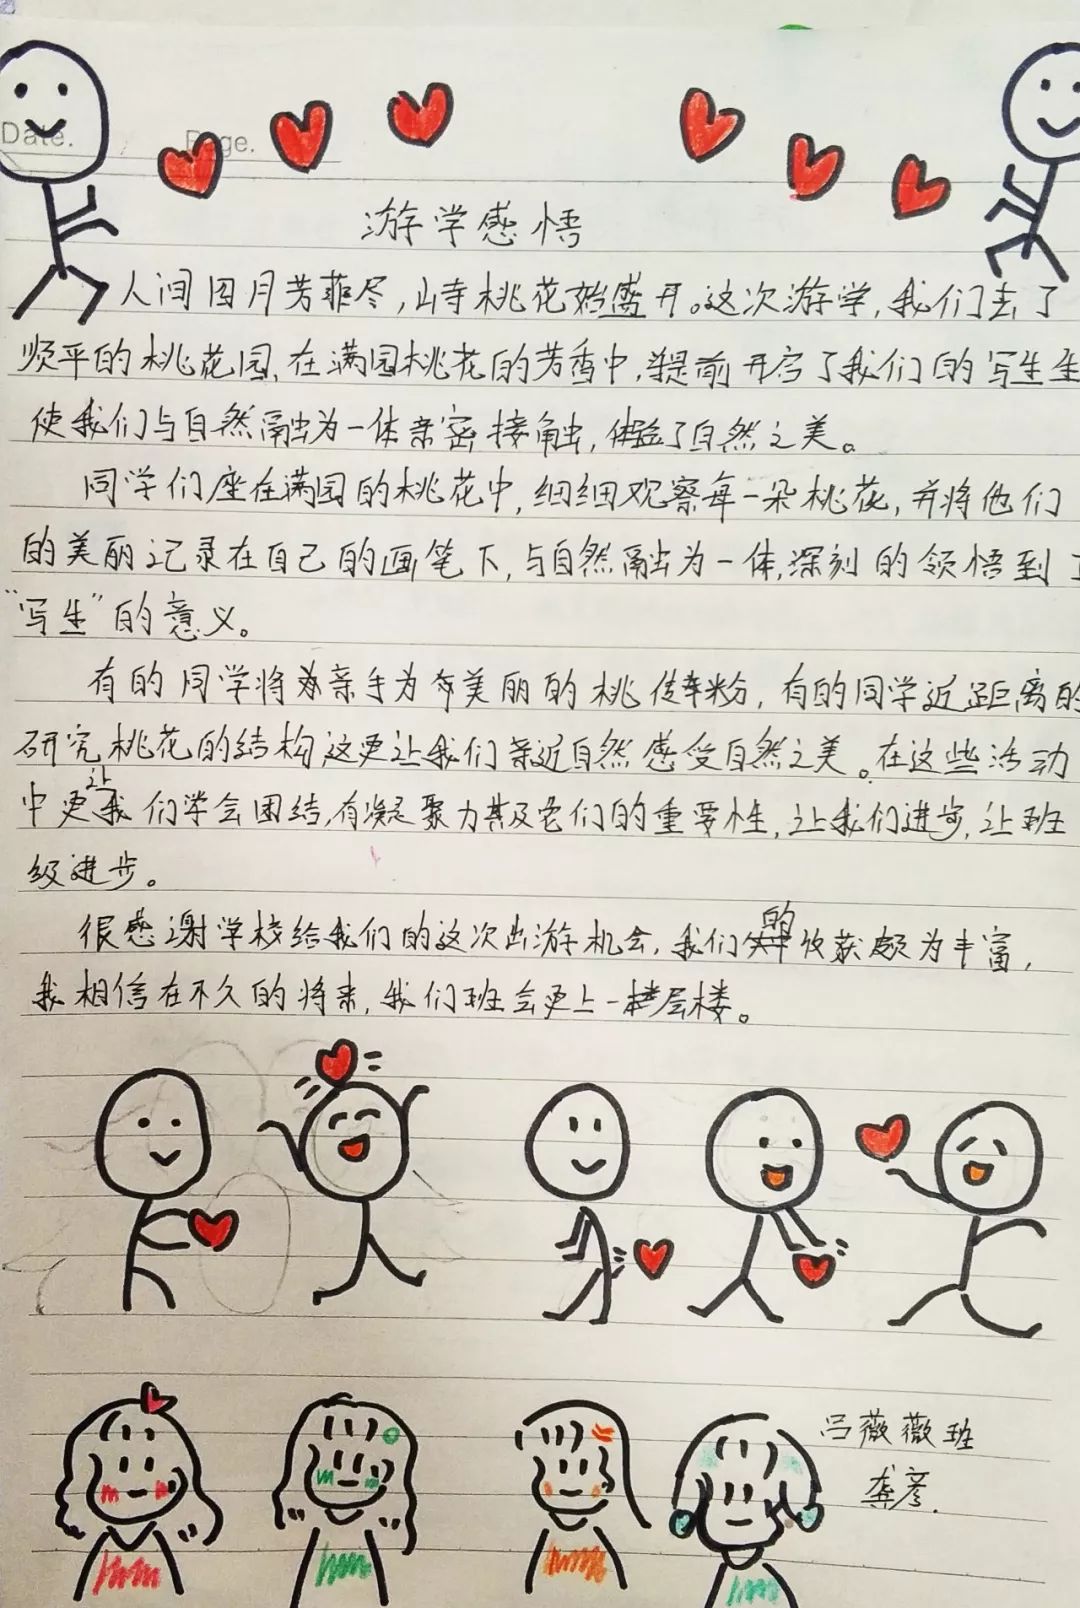 Date.
Page.
游学感悟
人间四月芳菲尽,山寺桃花始盛开。这次游学,我们去了
顺平的桃花园,在满园桃花的芳香中,提前开启了我们的写生生
使我们与自然融为一体亲密接触,体验了自然之美。
同学们座在满园的桃花中,细细观察每一朵桃花,并将他们
的美丽记录在自己的画笔下,与自然融为一体,深刻的领悟到了
“写生”的意义。
有的同学将亲手为美丽的桃传粉,有的同学近距离的
研究桃花的结构,这更让我们亲近自然感受自然之美。在这些活动
中更让我们学会团结,有凝聚力甚及它们的重要性,让我们进步,让班
级进步。
很感谢学校给我们的这次出游机会,我们的收获颇为丰富,
我相信在不久的将来,我们班会更上一层楼。
吕薇薇班
龚彦.